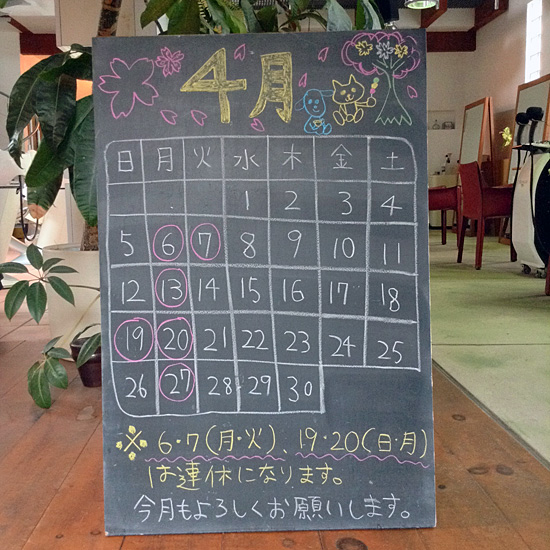 4月
日 月 火 水 木 金 土
1 2 3 4
5 6 7 8 9 10 11
12 13 14 15 16 17 18
19 20 21 22 23 24 25
26 27 28 29 30
※ 6・7(月・火)、19・20(日・月)
は連休になります。
今月もよろしくお願いします。